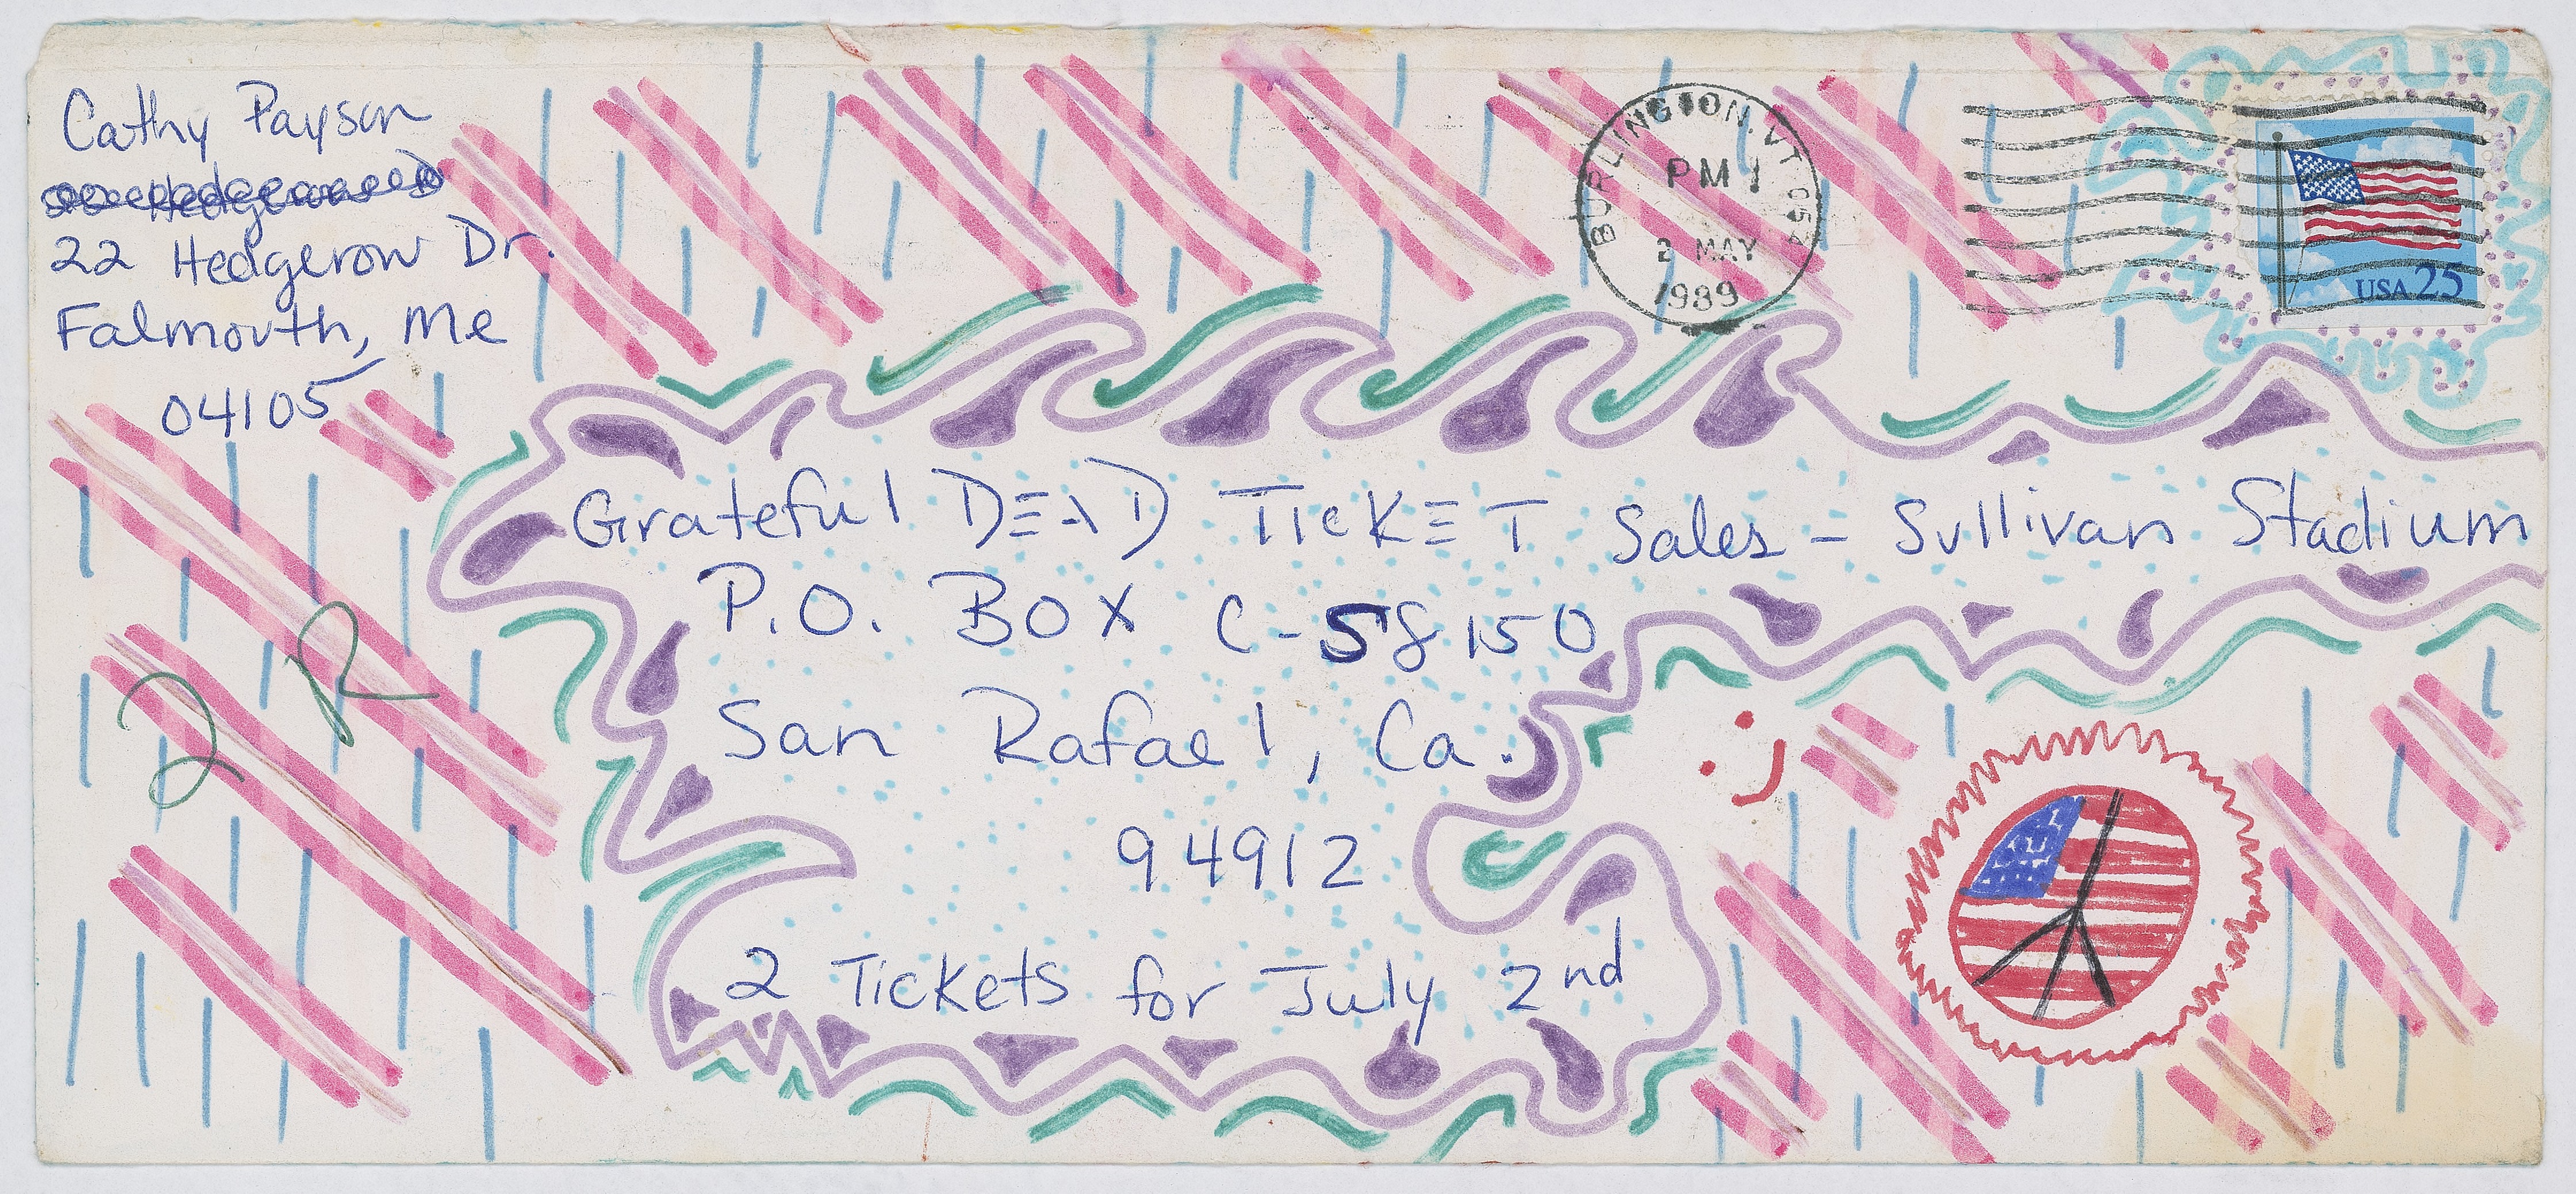 Cathy Payson
22 Hedgerow Dr.
Falmouth, Me
04105
BURLINGTON, VT 050
PM
2 MAY
1989
USA 25
Grateful DEAD TicKET Sales - Sullivan Stadium
P.O. BOX C-58150
San Rafael, Ca.
94912
2 Tickets for July 2nd
2 R